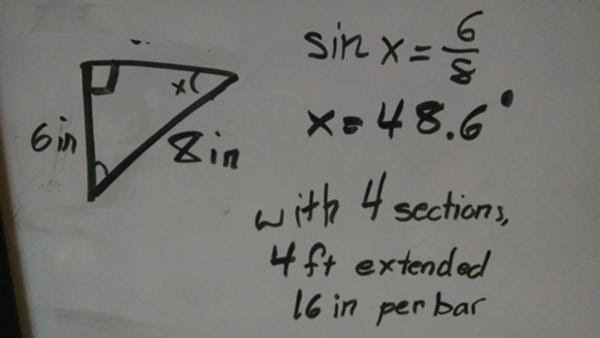 x
6in
8in
sin x = 6/8
x = 48.6°
with 4 sections,
4 ft extended
16 in per bar